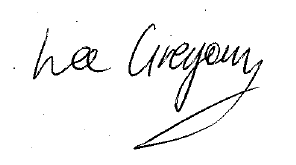 Lee Gregory